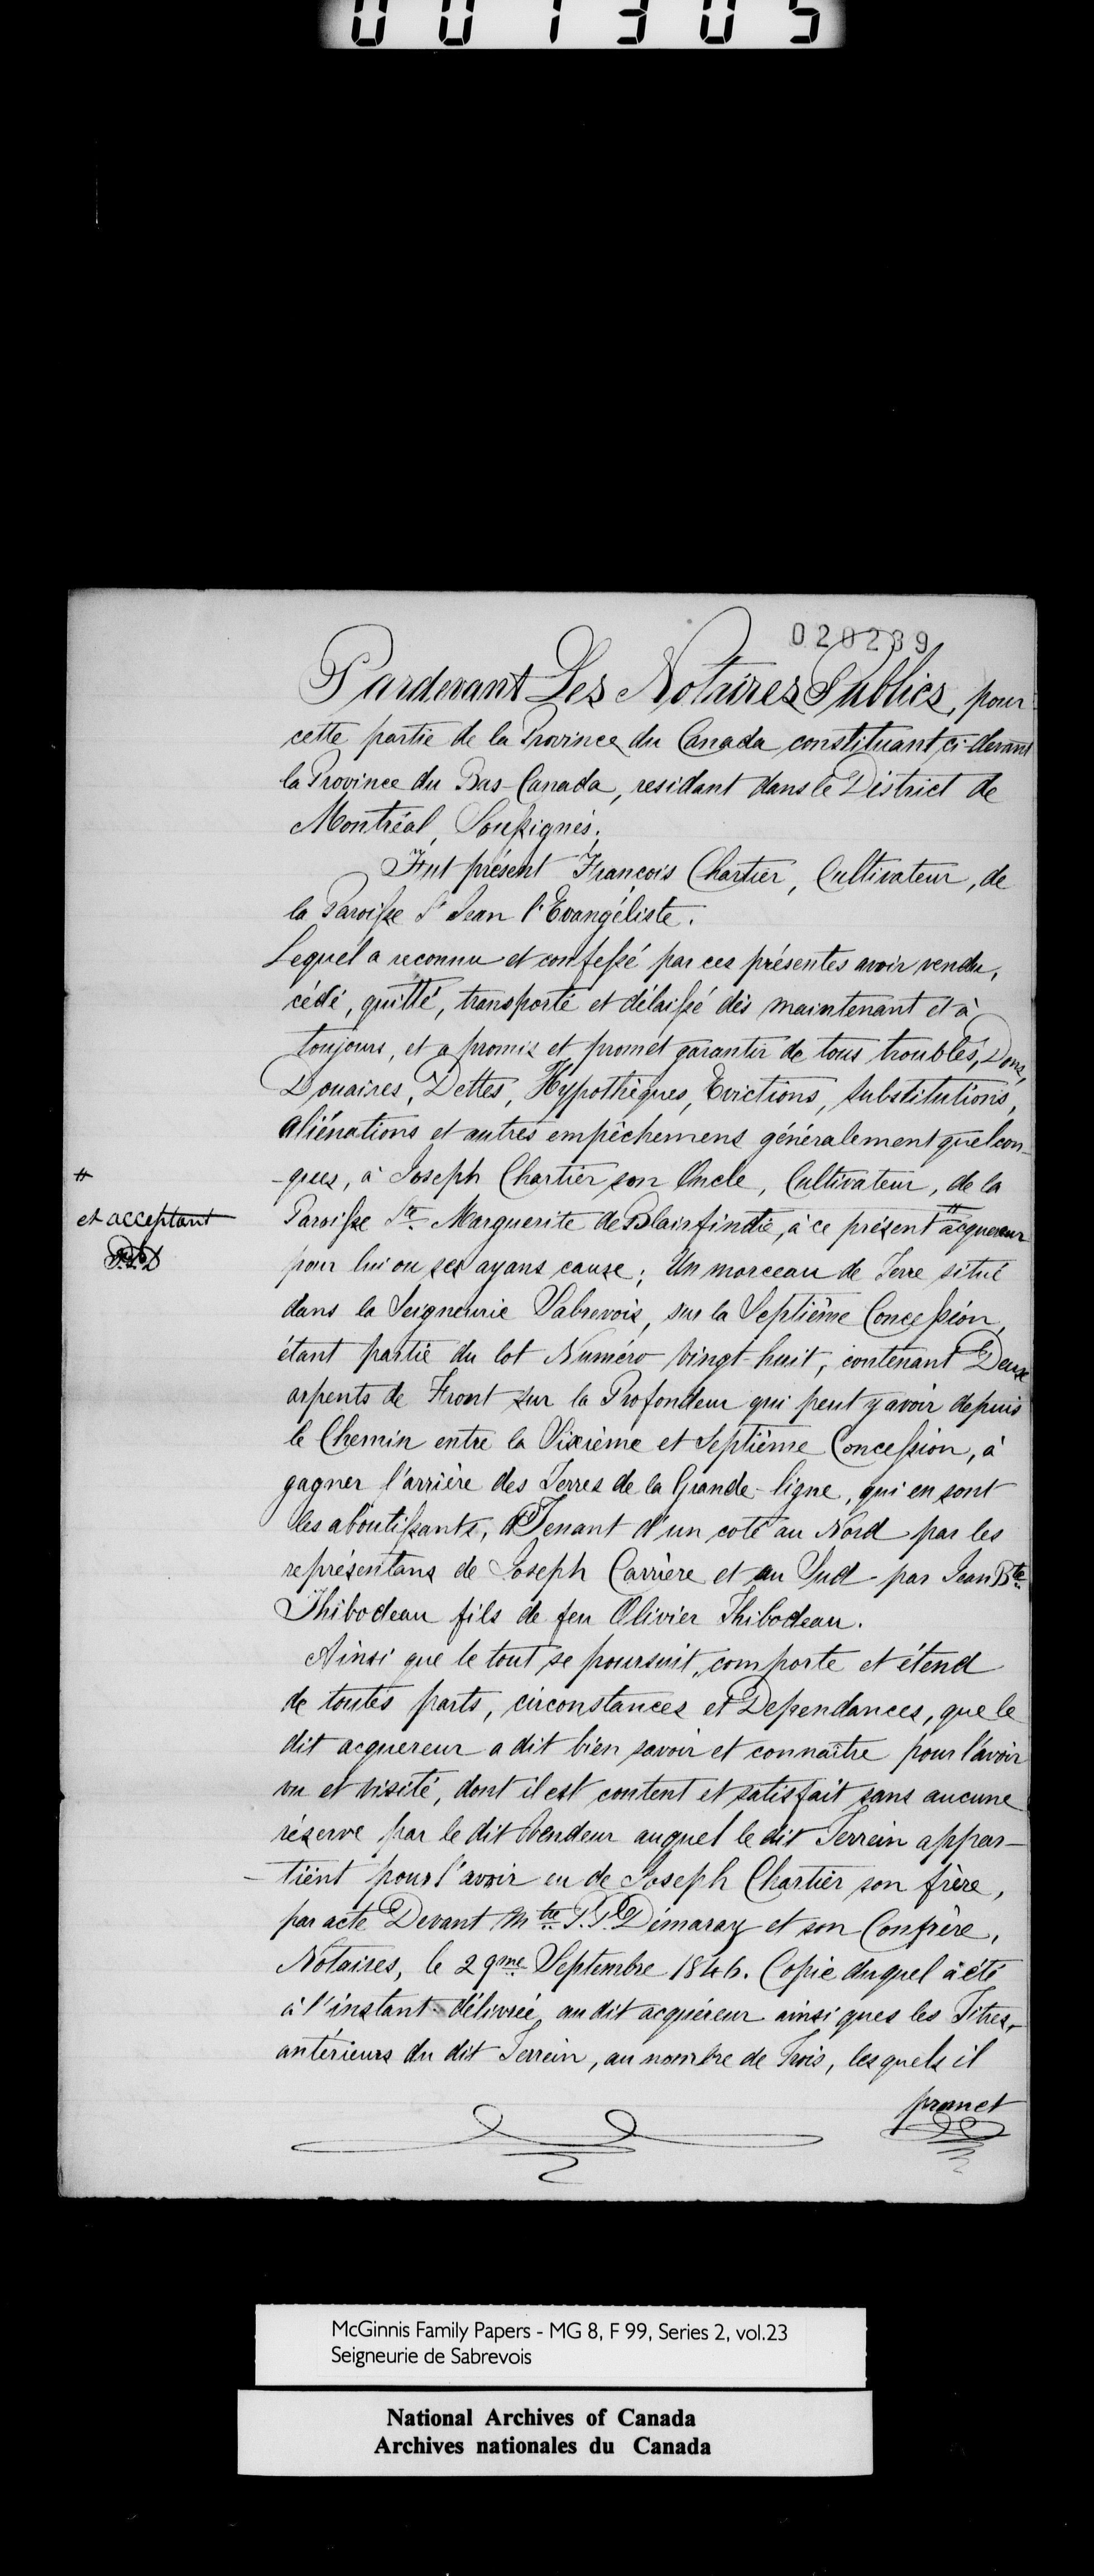 001305
020239
Pardevant Les Notaires Publics, pour
cette partie de la Province du Canada constituant ci-devant
la Province du Bas-Canada, residant dans le District de
Montréal, Soussignés;
Fut présent François Chartier, Cultivateur, de
la Paroisse St Jean l'Evangéliste.
Lequel a reconnu et confessé par ces présentes avoir vendu,
cédé, quitté, transporté et délaissé dès maintenant et à
toujours, et a promis et promet garantir de tous troubles, Dons,
Douaires, Dettes, Hypothèques, Evictions, substitutions,
aliénations et autres empêchemens généralement quelcon-
-ques, à Joseph Chartier son Oncle, Cultivateur, de la
#
et acceptant
Paroisse Ste Marguerite de Blairfindie, à ce présent # acquereur
pour lui ou ses ayans cause; Un morceau de Terre situé
dans la Seigneurie Sabrevois, sur la Septième Concession,
étant partie du lot Numéro vingt-huit, contenant Deux
arpents de Front sur la Profondeur qui peut y avoir depuis
le Chemin entre la Sixième et Septième Concession, à
gagner l'arrière des Terres de la Grande-ligne, qui en sont
les aboutissants, Tenant d'un coté au Nord par les
représentans de Joseph Carrière et au Sud par Jean Bte
Thibodeau fils de feu Olivier Thibodeau.
Ainsi que le tout se poursuit, comporte et étend
de toutes parts, circonstances et Dependances, que le
dit acquereur a dit bien savoir et connaître pour l'avoir
vu et visité, dont il est content et satisfait sans aucune
réserve par le dit Vendeur auquel le dit Terrein appar-
-tient pour l'avoir eu de Joseph Chartier son frère,
par acte Devant Mtre P. P. Démaray et son Confrère,
Notaires, le 29me Septembre 1846. Copie duquel à été
à l'instant délivrée au dit acquéreur ainsi ques les Titres
antérieurs du dit Terrein, au nombre de Trois, lesquels il
promet
McGinnis Family Papers - MG 8, F 99, Series 2, vol.23
Seigneurie de Sabrevois
National Archives of Canada
Archives nationales du Canada